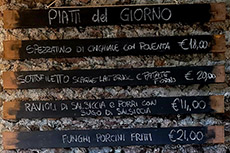 PIATTI del GIORNO
SPEZZATINO DI CINGHIALE CON POLENTA €18,00
SOTTOFILETTO €
RAVIOLI DI SALSICCIA E PORRI CON €11,00
SUGO DI SALSICCIA
FUNGHI PORCINI FRITTI €21,00